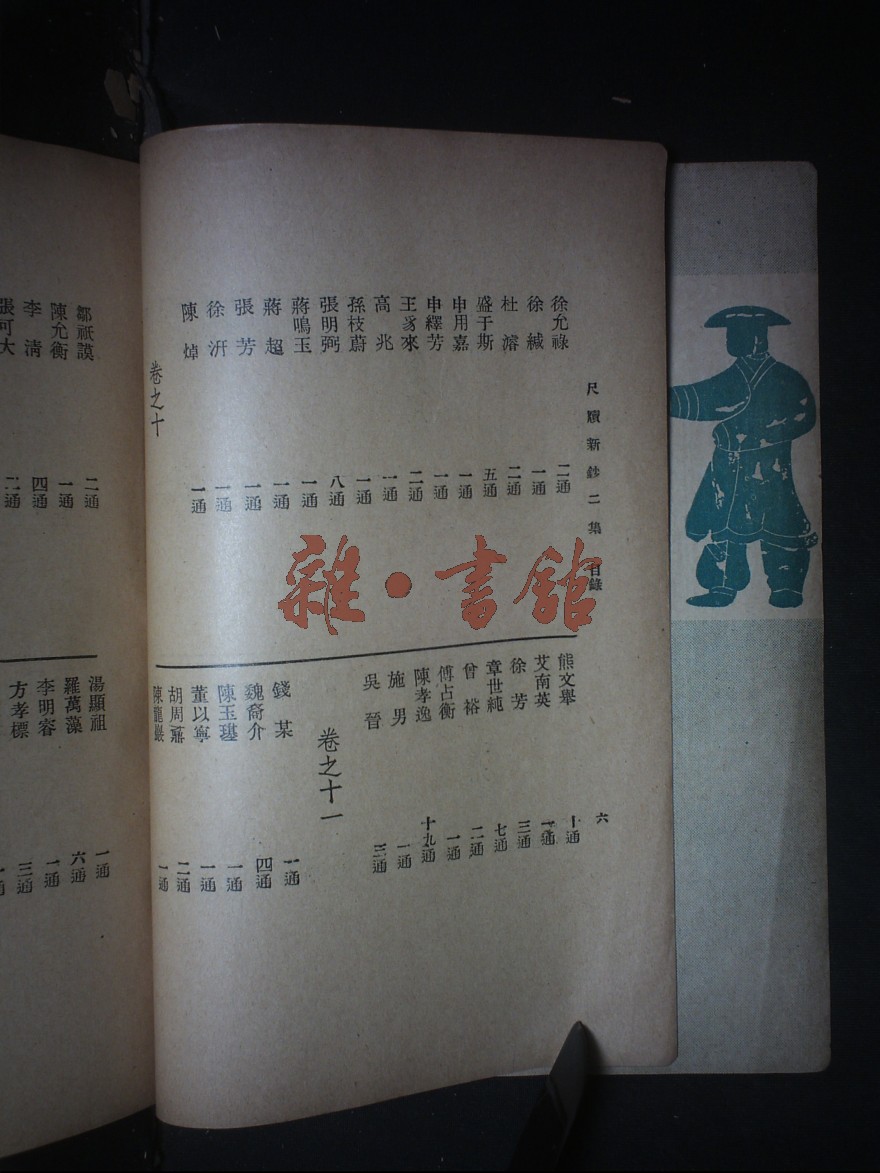 尺牘新鈔二集 目錄
六
徐允祿 二通
徐緘 一通
杜濬 二通
盛于斯 五通
申用嘉 一通
申繹芳 一通
王豸來 二通
高兆 一通
孫枝蔚 一通
張明弼 八通
蔣鳴玉 一通
蔣超 一通
張芳 一通
徐汧 一通
陳焯 一通
卷之十
熊文舉 十通
艾南英 一通
徐芳 三通
章世純 七通
曾裕 二通
傅占衡 一通
陳孝逸 十九通
施男 一通
吳晉 三通
卷之十一
錢某 一通
魏裔介 四通
陳玉璂 一通
董以寧 一通
胡周鼒 二通
陳龍巖 一通
鄒祇謨 二通
陳允衡 一通
李清 四通
張可大 二通
湯顯祖 一通
羅萬藻 六通
李明睿 一通
方孝標 三通
雜·書館